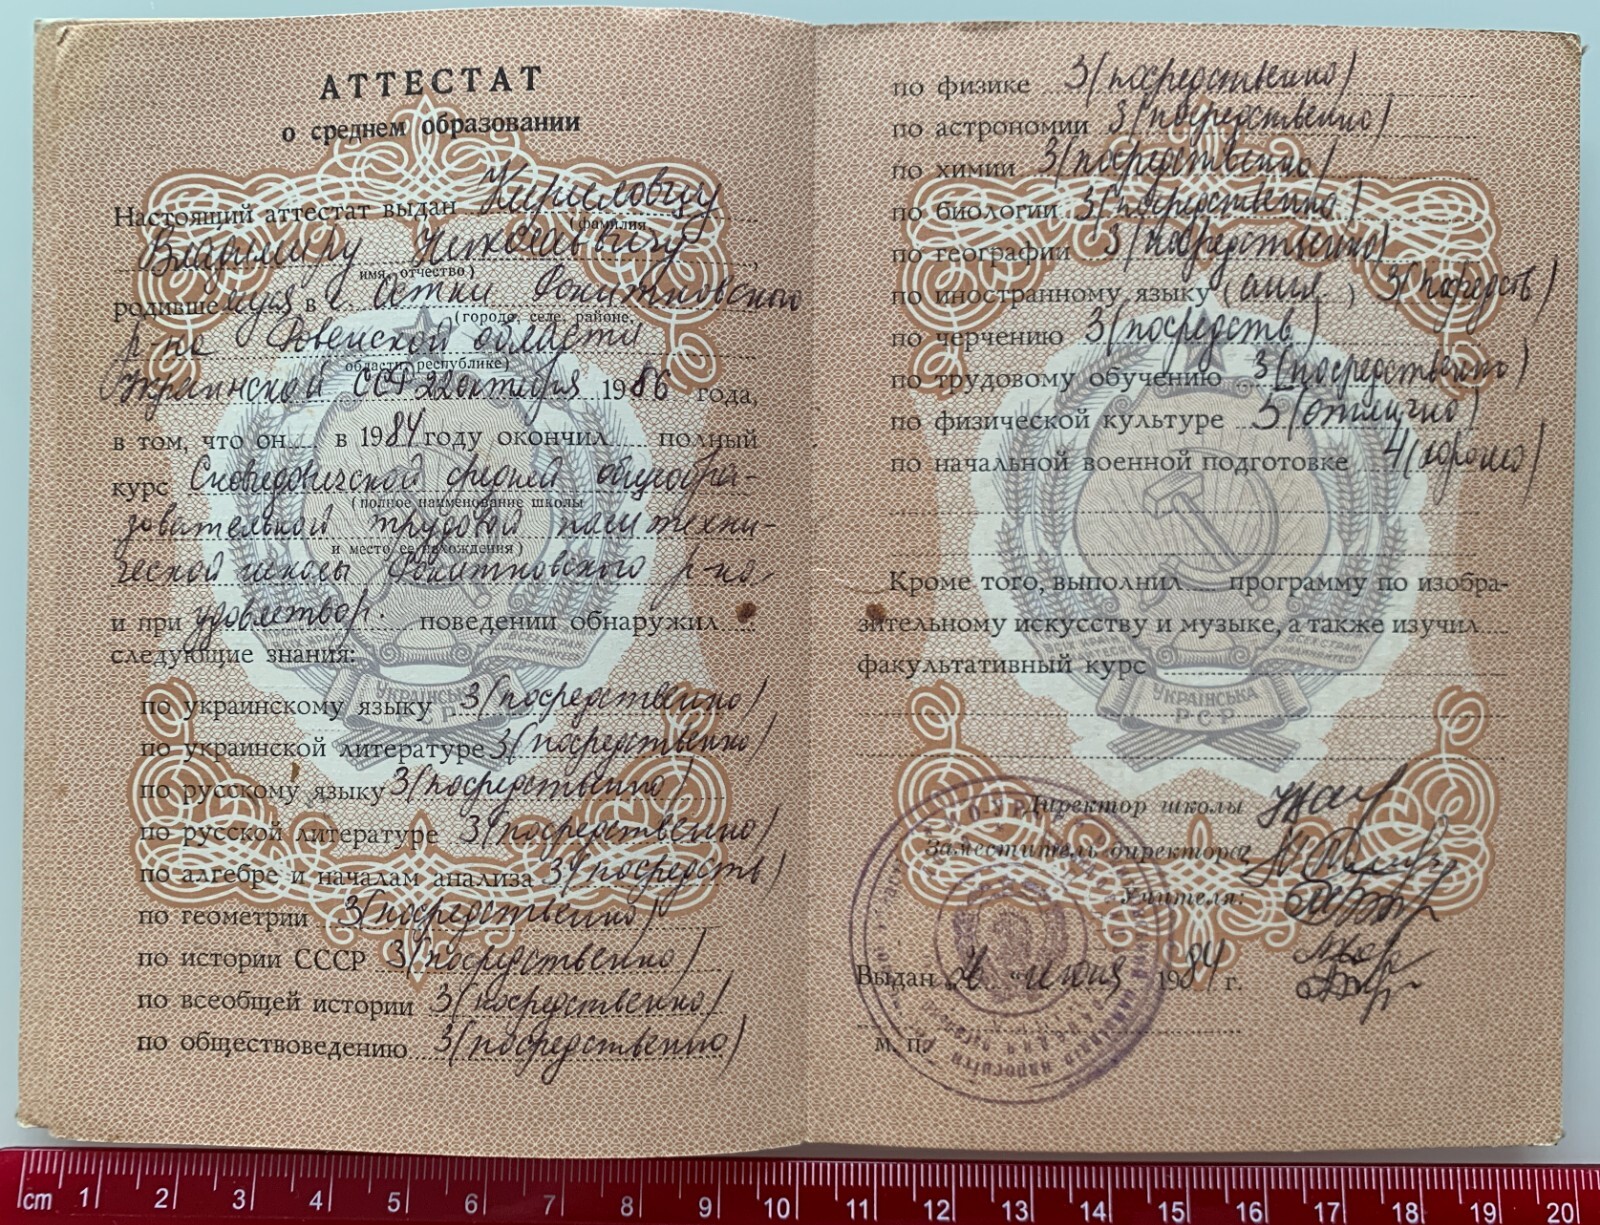 АТТЕСТАТ
о среднем образовании
Настоящий аттестат выдан Кириловцу
(фамилия,
Владимиру Николаевичу,
имя, отчество)
родившемуся в с. Сехи Рокитновского
(городе, селе, районе,
р-на Ровенской области
области, республике)
Украинской ССР 22 октября 1986 года,
в том, что он в 1984 году окончил полный
курс Сновидовичской средней общеобра-
(полное наименование школы
зовательной трудовой политехни-
и место ее нахождения)
ческой школы Рокитновского р-на,
и при удовлетвор. поведении обнаружил
следующие знания:
по украинскому языку 3 (посредственно)
по украинской литературе 3 (посредственно)
по русскому языку 3 (посредственно)
по русской литературе 3 (посредственно)
по алгебре и началам анализа 3 (посредств)
по геометрии 3 (посредственно)
по истории СССР 3 (посредственно)
по всеобщей истории 3 (посредственно)
по обществоведению 3 (посредственно)
УКРАЇНСЬКА
РСР
по физике 3 (посредственно)
по астрономии 3 (посредственно)
по химии 3 (посредственно)
по биологии 3 (посредственно)
по географии 3 (посредственно)
по иностранному языку (англ) 3 (посредств)
по черчению 3 (посредств)
по трудовому обучению 3 (посредственно)
по физической культуре 5 (отлично)
по начальной военной подготовке 4 (хорошо)
Кроме того, выполнил программу по изобра-
зительному искусству и музыке, а также изучил
факультативный курс
УКРАЇНСЬКА
РСР
Директор школы
Заместитель директора
Учителя:
Выдан 26 июня 1984 г.
М. П.
cm 1 2 3 4 5 6 7 8 9 10 11 12 13 14 15 16 17 18 19 20